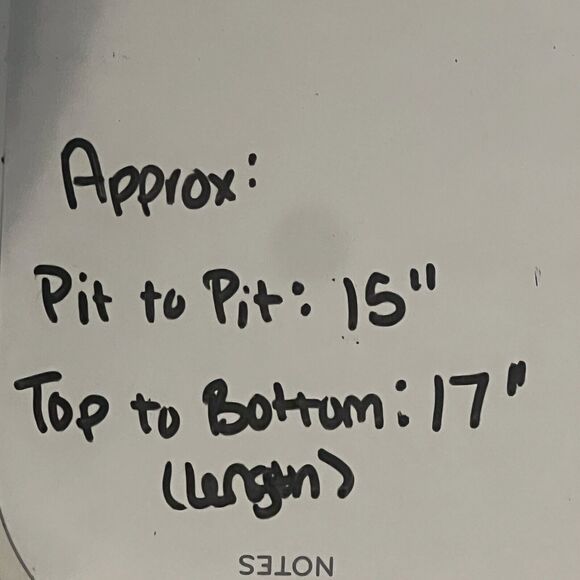 Approx:
Pit to Pit: 15"
Top to Bottom: 17"
(length)
NOTES